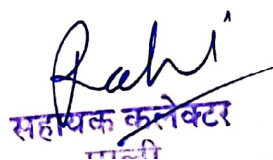 Rahi
सहायक कलेक्टर